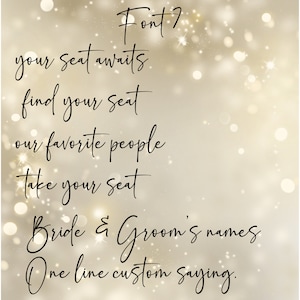 Font 7
your seat awaits
find your seat
our favorite people
take your seat
Bride & Groom's names
One line custom saying.